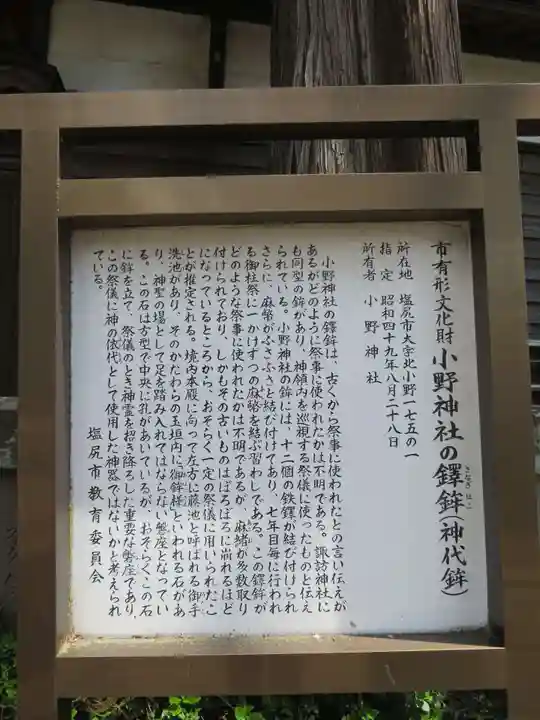 市有形文化財 小野神社の鐸鉾(神代鉾)
さなぎほこ
所在地 塩尻市大字北小野一七五の一
指定 昭和四十九年八月二十八日
所有者 小野神社
小野神社の鐸鉾は、古くから祭事に使われたとの言い伝えが
あるがどのように祭事に使われたかは不明である。諏訪神社に
も同型の鉾があり、神領内を巡視する祭儀に使ったものと伝え
られている。小野神社の鉾には、十二個の鉄鐸が結び付けられ
さらに、麻幣がふさふさと結び付けてあり、七年目毎に行われ
る御柱祭につかけずつの麻幣を結ぶ習わしである。この鐸鉾が
どのような祭事に使われたかは不明であるが、麻緒が多数取り
付けられており、しかもその古いものはぼろぼろに崩れるほど
になっているところから、おそらく一定の祭儀に用いられたこ
とが推定される。境内本殿に向って左方に藤池と呼ばれる御手
洗池があり、そのかたわらの玉垣内に御鉾様といわれる石があ
り、神聖の場として足を踏み入れてはならない磐座となってい
る。この石は方型で中央に孔があいているが、おそらくこの石
に鉾を立て、祭儀のとき神霊を招き降ろした重要な磐座であり、
この祭儀に神の依代として使用した神器ではないかと考えられ
ている。
塩尻市教育委員会